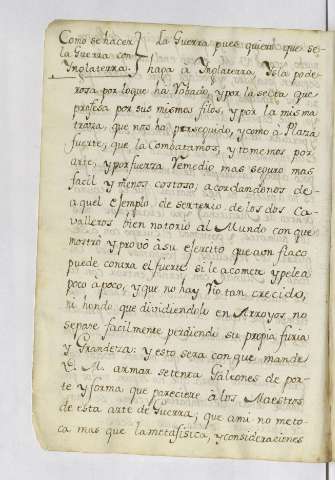 Como se hacer
la Guerra con
Ynglaterra.
La Guerra pues quiero que se
haga à Ynglaterra Ysla pode-
rosa por lo que ha Robado, y por la secta que
profesa por sus mismos filos, y por la misma
traza, que nos ha perseguido, y como à Plaza
fuerte, que la Combatamos, y tomemos por
arte, y por fuerza Remedio mas seguro mas
facil y menos costoso, acordandonos de
aquel exemplo de sertorio de los dos Ca-
valleros bien notorio al Mundo con que
mostró y provó à su exercito que aun flaco
puede contra el fuerte si le acomete y pelea
poco à poco, y que no hay Rio tan crecido,
ni hondo que dividiendole en Arroyos no
sepase facilmente perdiendo su propia furia
y Grandeza: y esto sera con que mande
V. M. armar setenta Galeones de por-
te y forma que pareciere à los Maestros
de esta arte de Guerra; que ami no meto-
ca mas que la metafisica, y consideraciones